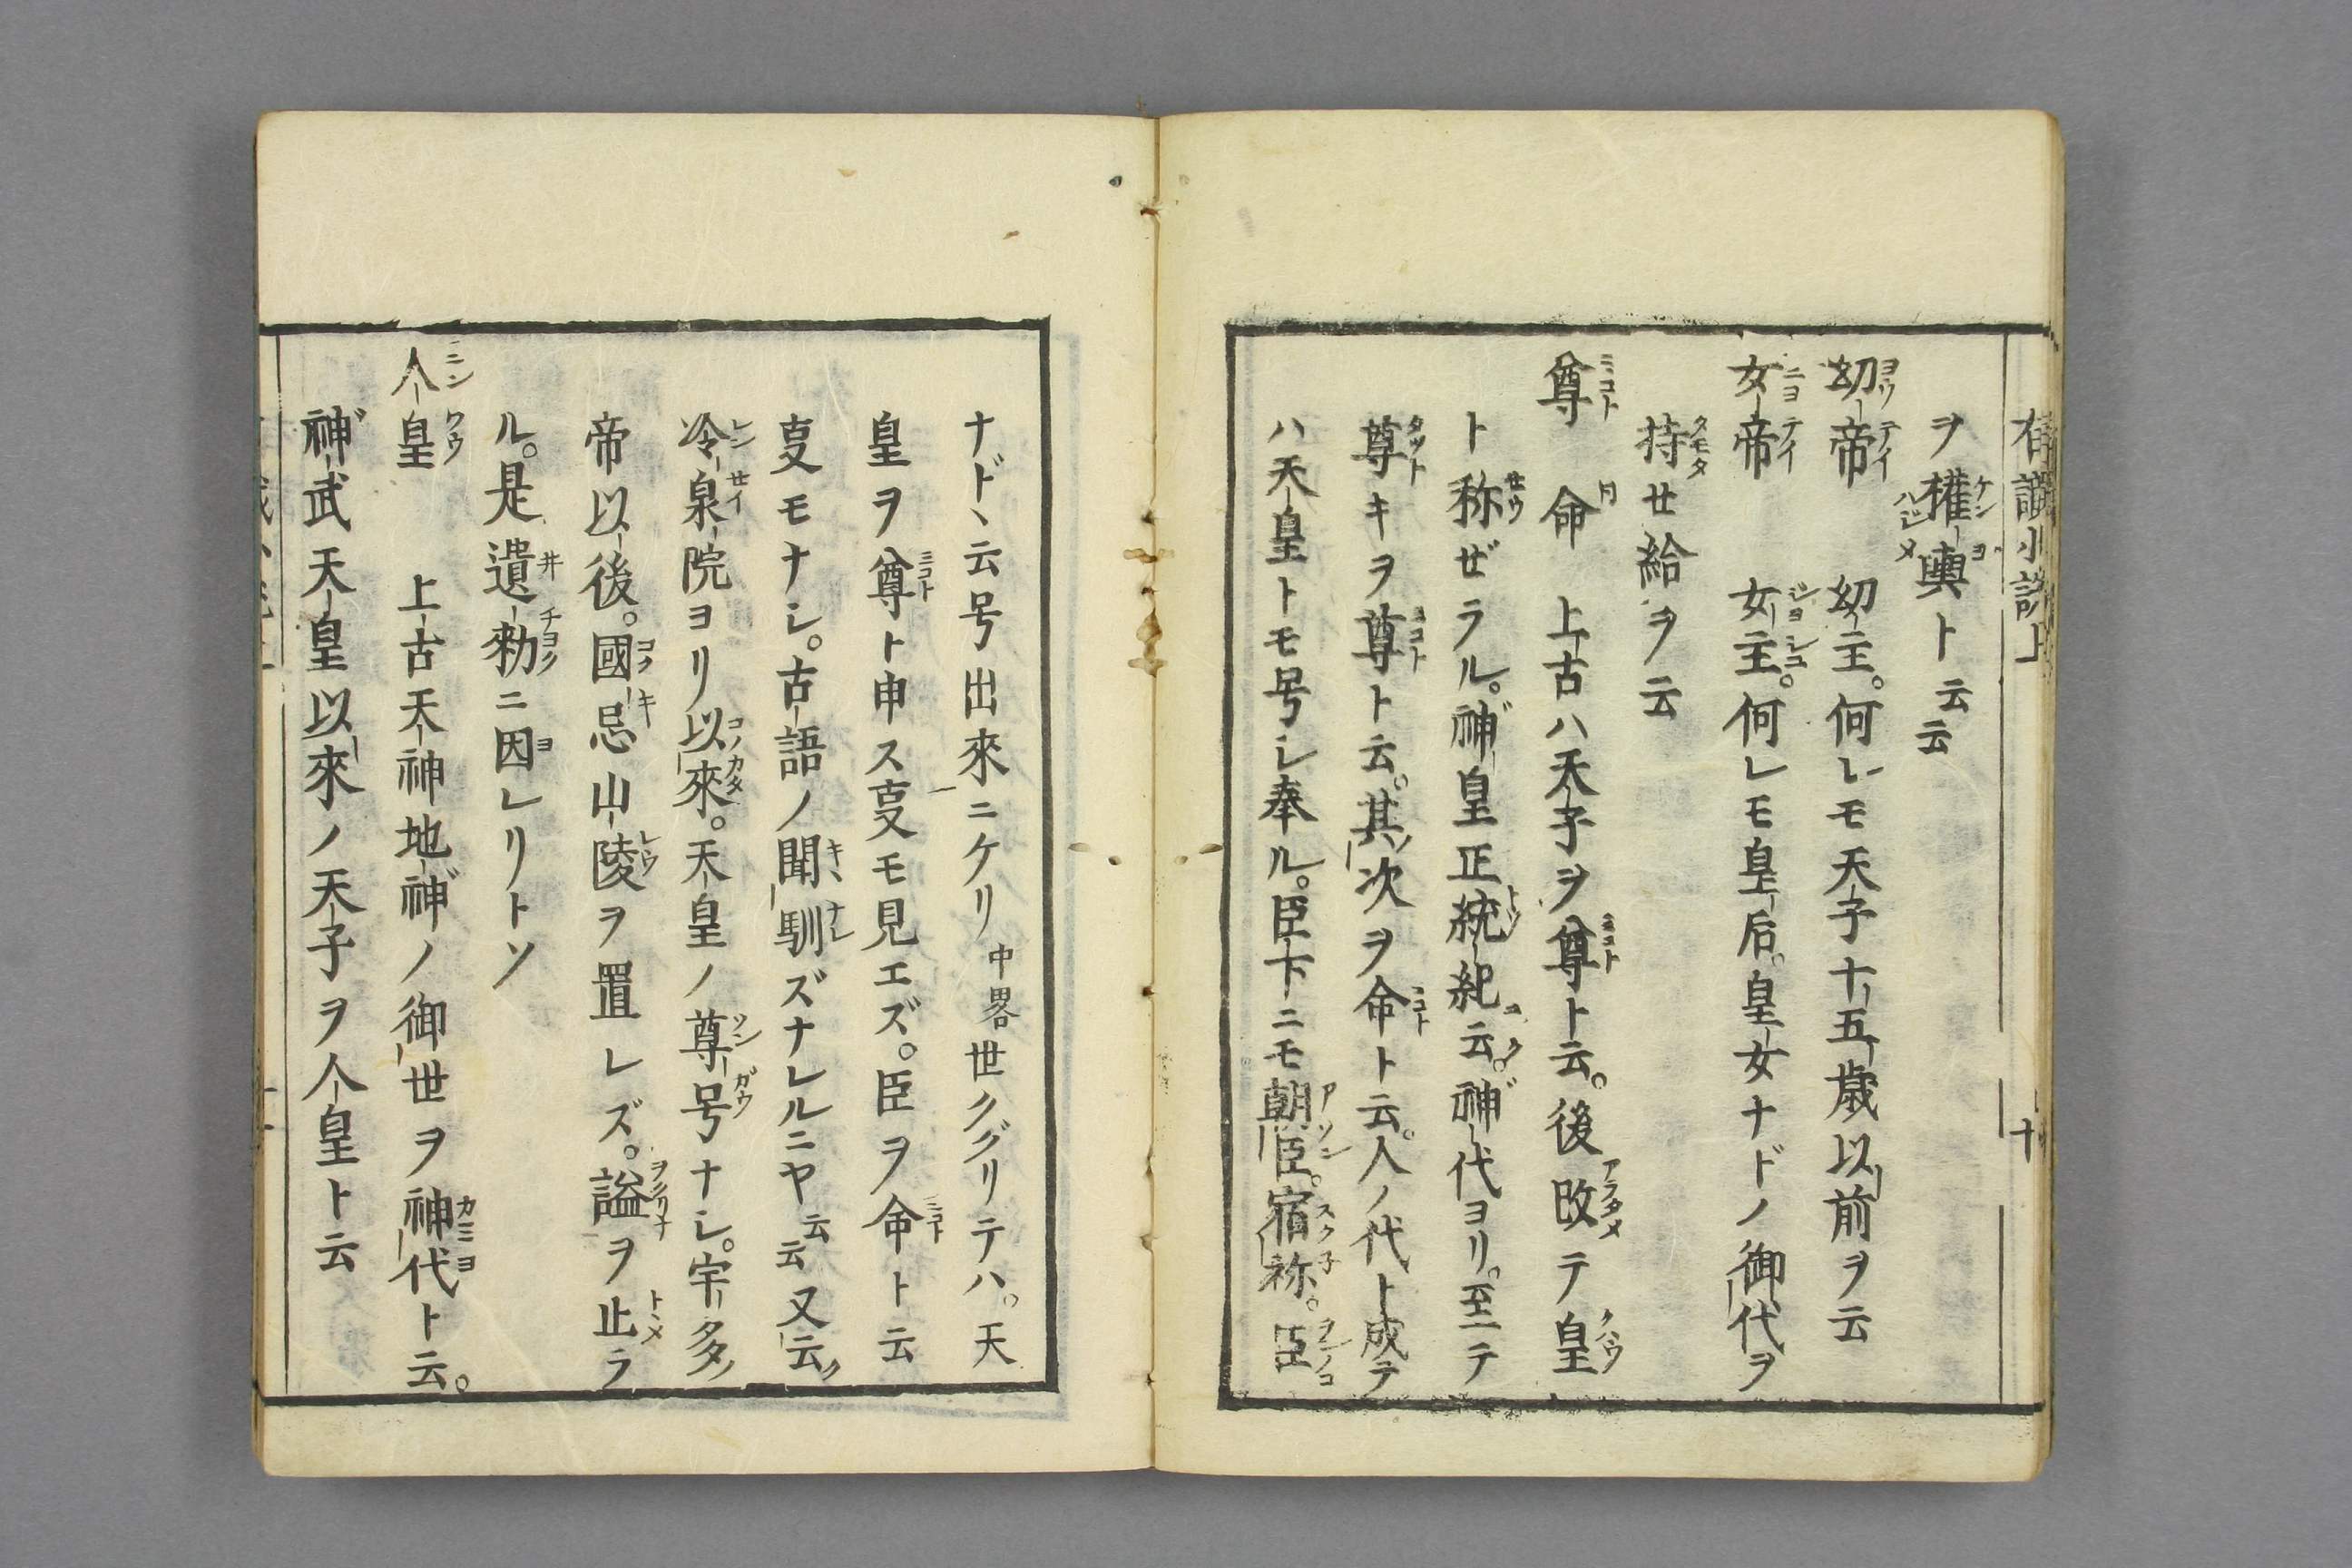 有識小説上 十
ヲ権輿ト云云
幼帝 幼主。何レモ天子十五歳以前ヲ云
女帝 女主。何レモ皇后。皇女ナドノ御代ヲ
持セ給ヲ云
尊 命 上古ハ天子ヲ尊ト云。後改テ皇
ト称ゼラル。神皇正統紀云。神代ヨリ。至テ
尊キヲ尊ト云。其次ヲ命ト云。人ノ代ト成テ
ハ天皇トモ号シ奉ル。臣下ニモ朝臣。宿祢。臣
ナドヽ云号出來ニケリ中畧世クダリテハ。天
皇ヲ尊ト申ス叓モ見エズ。臣ヲ命ト云
叓モナシ。古語ノ聞馴ズナレルニヤ云云又云ク
冷泉院ヨリ以來。天皇ノ尊号ナシ。宇多ノ
帝以後。國忌山陵ヲ置レズ。謚ヲ止ラ
ル。是遺勅ニ因レリトソ
人皇 上古天神地神ノ御世ヲ神代ト云。
神武天皇以來ノ天子ヲ人皇ト云